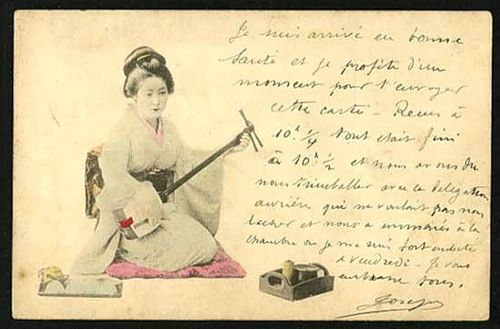 Je suis arrivé en bonne
santé et je profite d'un
moment pour t'envoyer
cette carte - Reçus à
10h 1/4 tout était fini
à 10h 1/2 et nous avons du
nous trimballer avec la delegation
ouvrière qui ne voulait pas nous
lacher et nous a emmenés à la
chambre où je me suis fort embêté
à vendredi - Je vous
embrasse tous.
Joseph